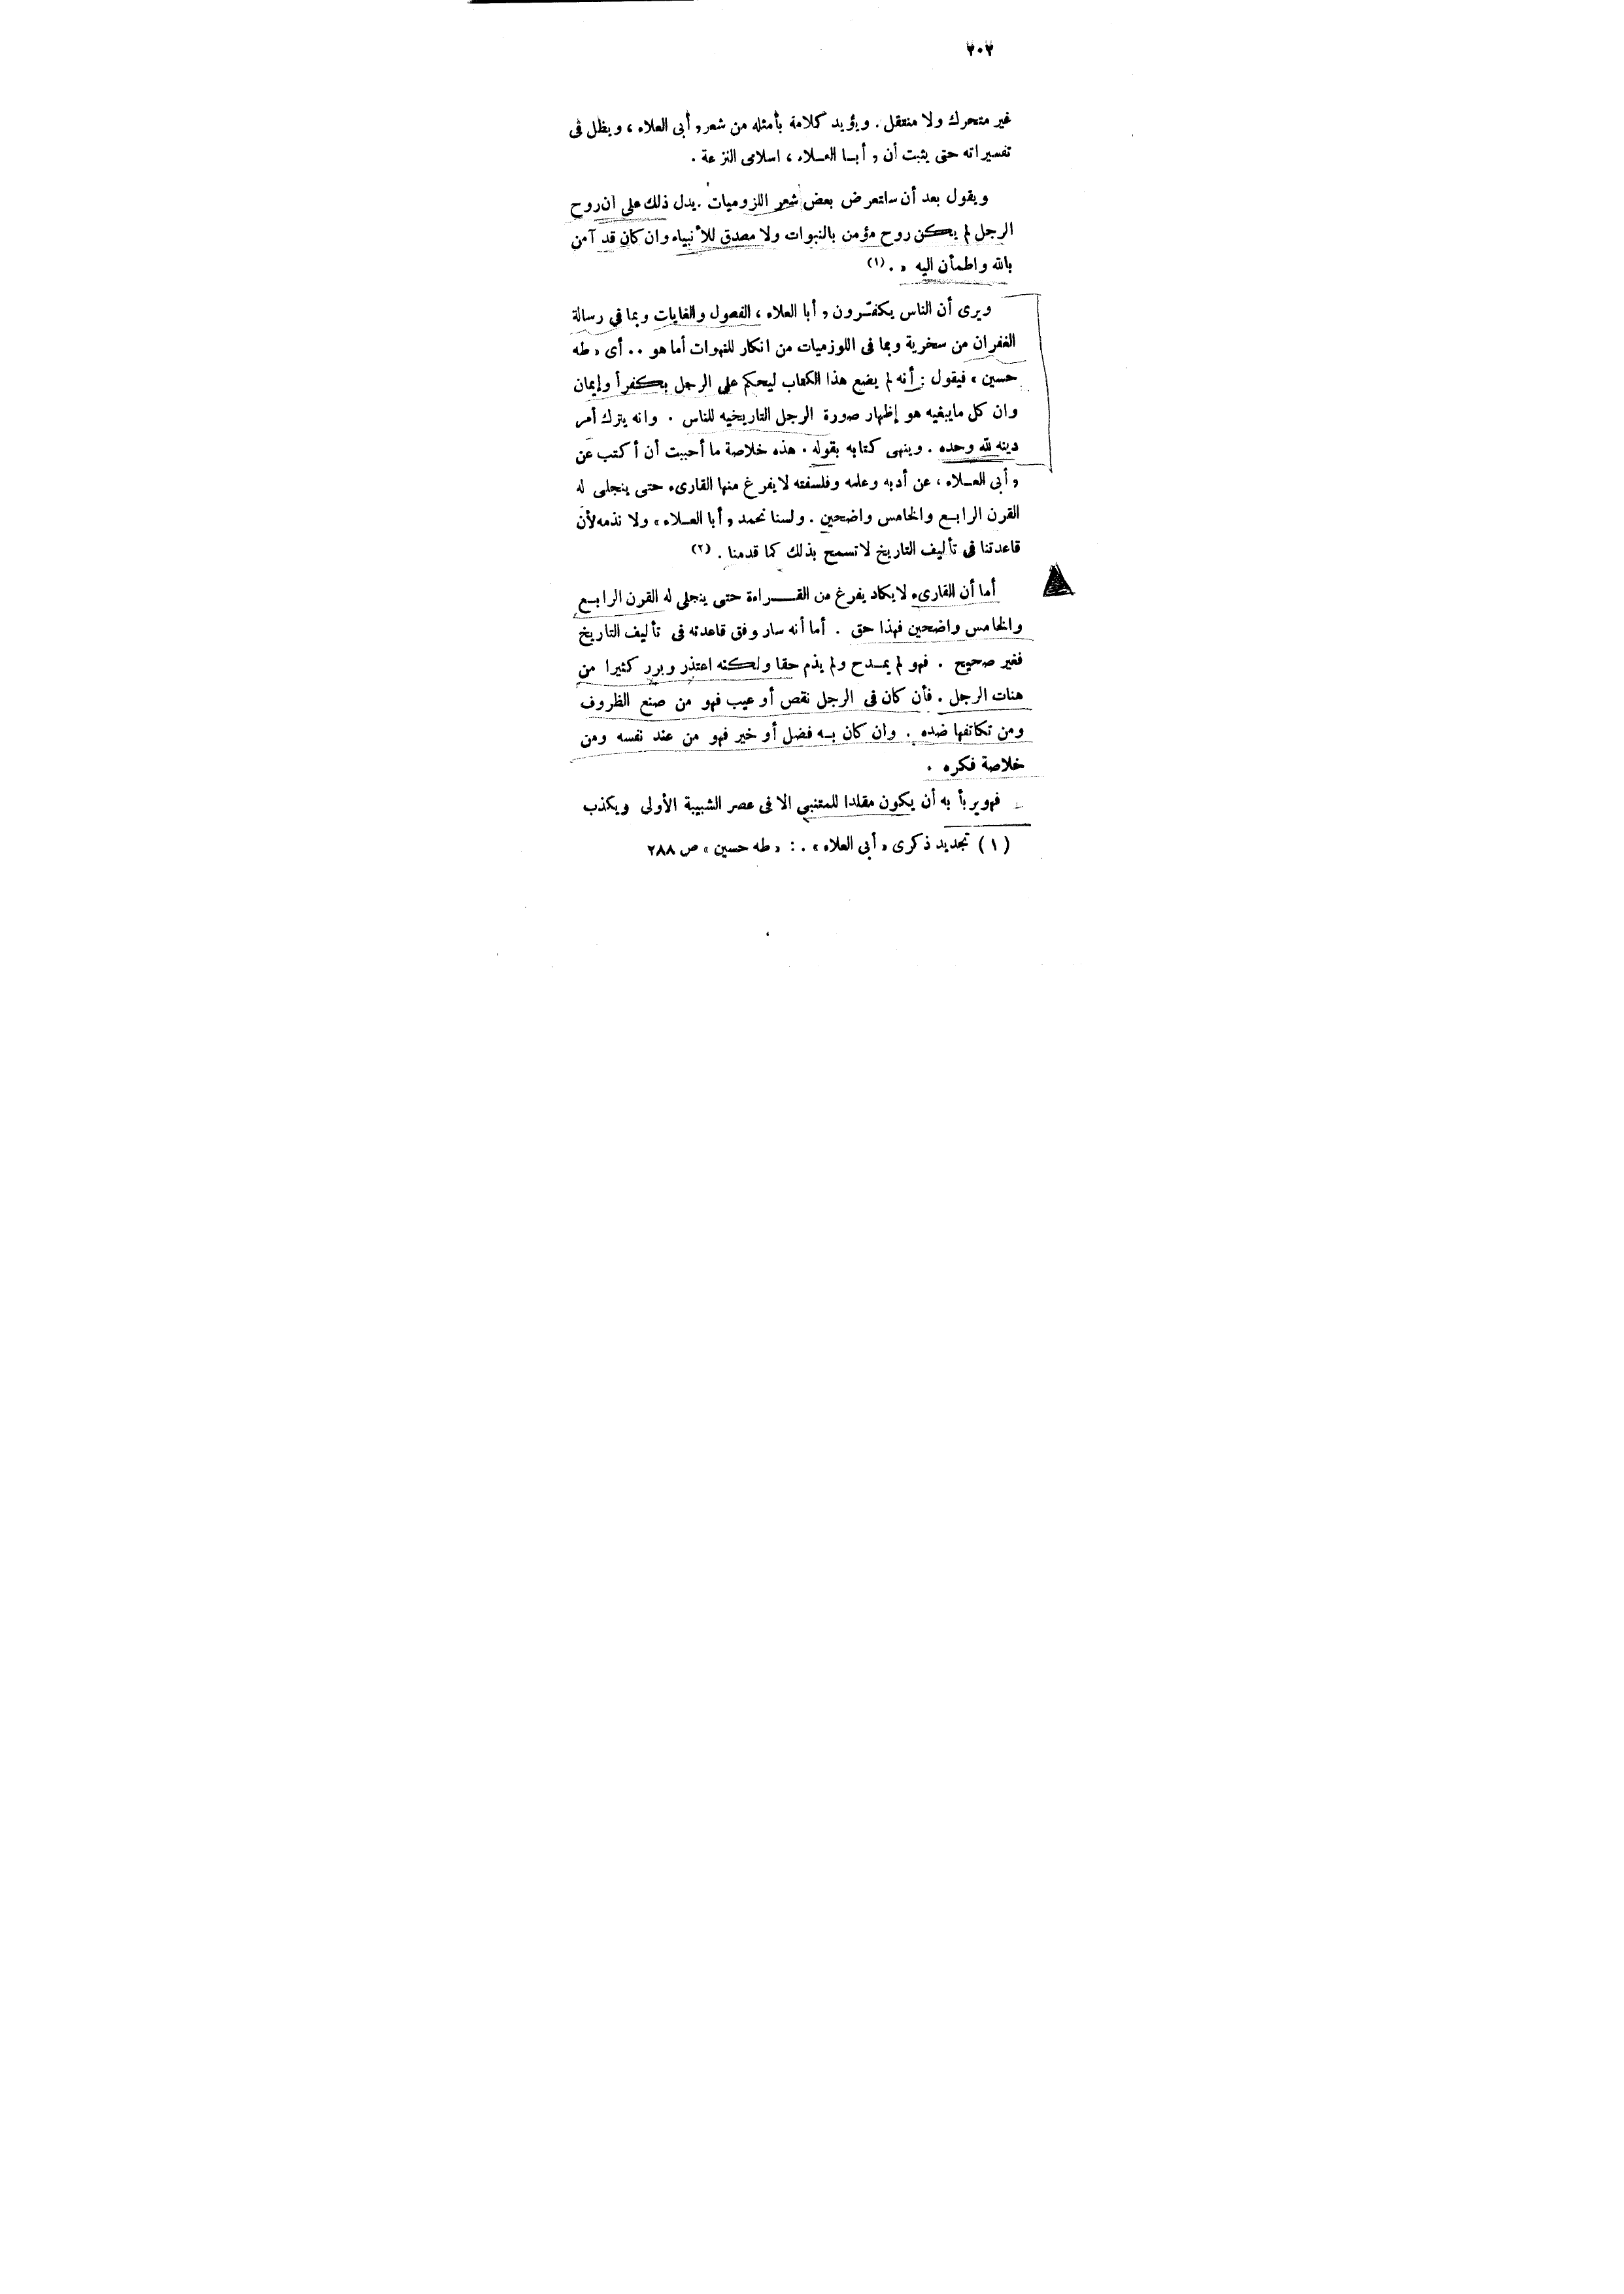 ٢٠٢
غير متحرك ولا منتقل . ويؤيد كلامة بأمثله من شعر « أبى العلاء » ويظل فى
تفسيراته حتى يثبت أن « أبــا العــلاء » اسلامى النزعة .
ويقول بعد أن ساتعرض بعض شعر اللزوميات . يدل ذلك على ان روح
الرجل لم يكن روح مؤمن بالنبوات ولا مصدق للأنبياء وان كان قد آمن
بالله واطمأن اليه « . (١)
ويرى أن الناس يكفرون « أبا العلاء » الفصول والغايات وبما فى رسالة
الغفران من سخرية وبما فى اللوزميات من انكار للنبوات أما هو .. أى « طه
حسين » فيقول : أنه لم يضع هذا الكتاب ليحكم على الرجل بكفر أو إيمان
وان كل مايبغيه هو إظهار صورة الرجل التاريخيه للناس . وانه يترك أمر
دينه لله وحده . وينهى كتابه بقوله . هذه خلاصة ما أحببت أن أكتب عن
« أبى العــلاء » عن أدبه وعلمه وفلسفته لايفرغ منها القارىء حتى ينجلى له
القرن الرابع والخامس واضحين . ولسنا نحمد « أبا العــلاء » ولا نذمه لأن
قاعدتنا فى تأليف التاريخ لاتسمح بذلك كما قدمنا . (٢)
أما أن القارىء لايكاد يفرغ من القــراءة حتى ينجلى له القرن الرابــع
والخامس واضحين فهذا حق . أما أنه سار وفق قاعدته فى تأليف التاريخ
فغير صحيح . فهو لم يمــدح ولم يذم حقا ولكنه اعتذر وبرر كثيرا من
هنات الرجل . فأن كان فى الرجل نقص أو عيب فهو من صنع الظروف
ومن تكاتفها ضده . وان كان بــه فضل أو خير فهو من عند نفسه ومن
خلاصة فكره .
فهو يربأ به أن يكون مقلدا للمتنبي الا فى عصر الشبيبة الأولى ويكذب
(١) تجديد ذكرى « أبى العلاء » . : « طه حسين » ص ٢٨٨